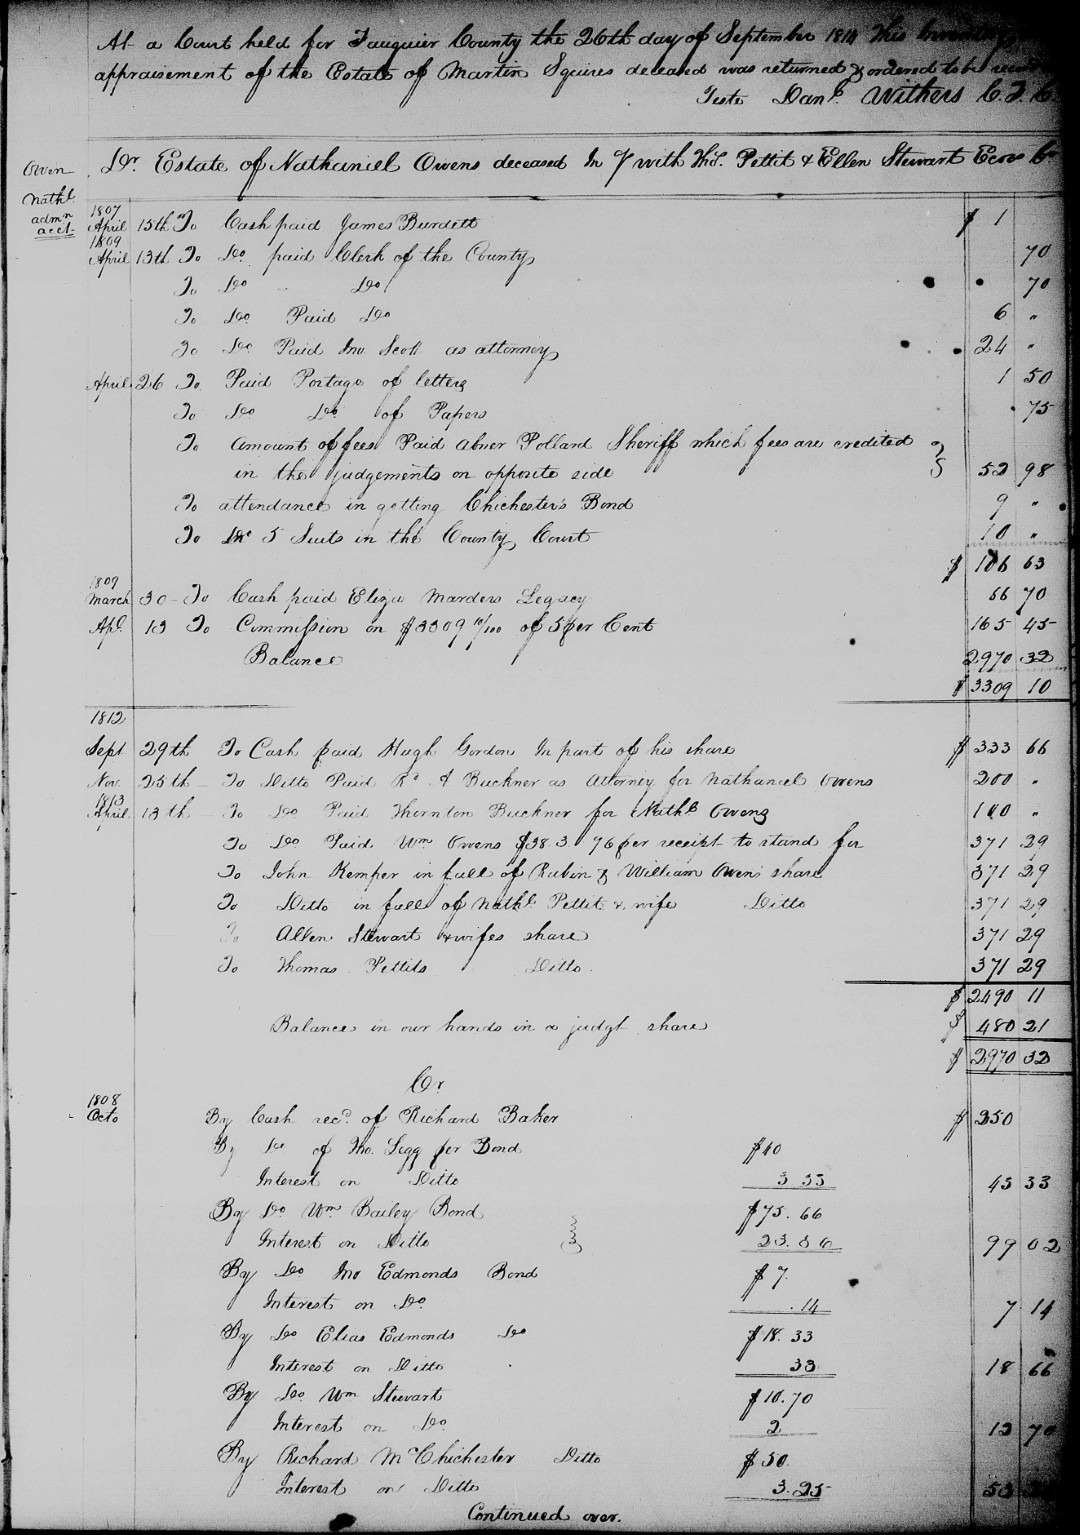 At a Court held for Fauquier County the 26th day of September 1814 This Inventory
appraisement of the Estate of Martin Squires deceased was returned & ordered to be
Teste Danl. Withers C. F. C.
Owen
Nathl.
admn
acct.
Dr. Estate of Nathaniel Owens deceased In a/ with Tho. Pettit & Ellen Stewart Ecors
1807
April 15th To Cash paid James Burdett $ 1
1809
April 13th To Do. paid Clerk of the County 70
To Do " Do 70
To Do. Paid Do 6 "
To Do Paid Jno Scott as attorney 24 "
April 26 To Paid Portage of letters 1 50
To Do Do of Papers 75
To amount of fees Paid Abner Pollard Sheriff which fees are credited
in the judgements on opposite side 52 98
To attendance in getting Chichester's Bond 9 "
To Do 5 Suits in the County Court 10 "
$ 106 63
1809
March 30 - To Cash paid Eliza Marders Legacy 66 70
Apl. 13 To Commission on $3309 10/100 of 5 per Cent 165 45
Balance 2970 32
$ 3309 10
1812
Sept 29th To Cash paid Hugh Gordon In part of his share $ 333 66
Nov. 25th - To Ditto Paid R. A Buckner as Attorney for Nathaniel Owens 200 "
1813
April 13th - To Do Paid Thornton Buckner for Nathl. Owens 100 "
To Do Paid Wm Owens $383 96 per receipt to stand for 371 29
To John Kemper in full of Rubin & William Owens share 371 29
To Ditto in full of Nathl. Pettit & wife Ditto 371 29
To Allen Stewart & wifes share 371 29
To Thomas Pettits Ditto 371 29
$ 2490 11
Balance in our hands in a judgt share $ 480 21
$ 2970 32
Cr
1808
Octo By Cash recd. of Richard Baker $ 250
By Do of Tho. Legg per Bond $40
Interest on Ditto 3 33 43 33
By Do Wm Bailey Bond $75.66
Interest on Ditto 23.36 99 02
By Do Jno Edmonds Bond $7.
Interest on Do. .14 7 14
By Do Elias Edmonds Do $18.33
Interest on Ditto 33 18 66
By Do. Wm Stewart $10.70
Interest on Do. 2 12 70
By Richard McChichester Ditto $50.
Interest on Ditto 3.25 53
Continued over.